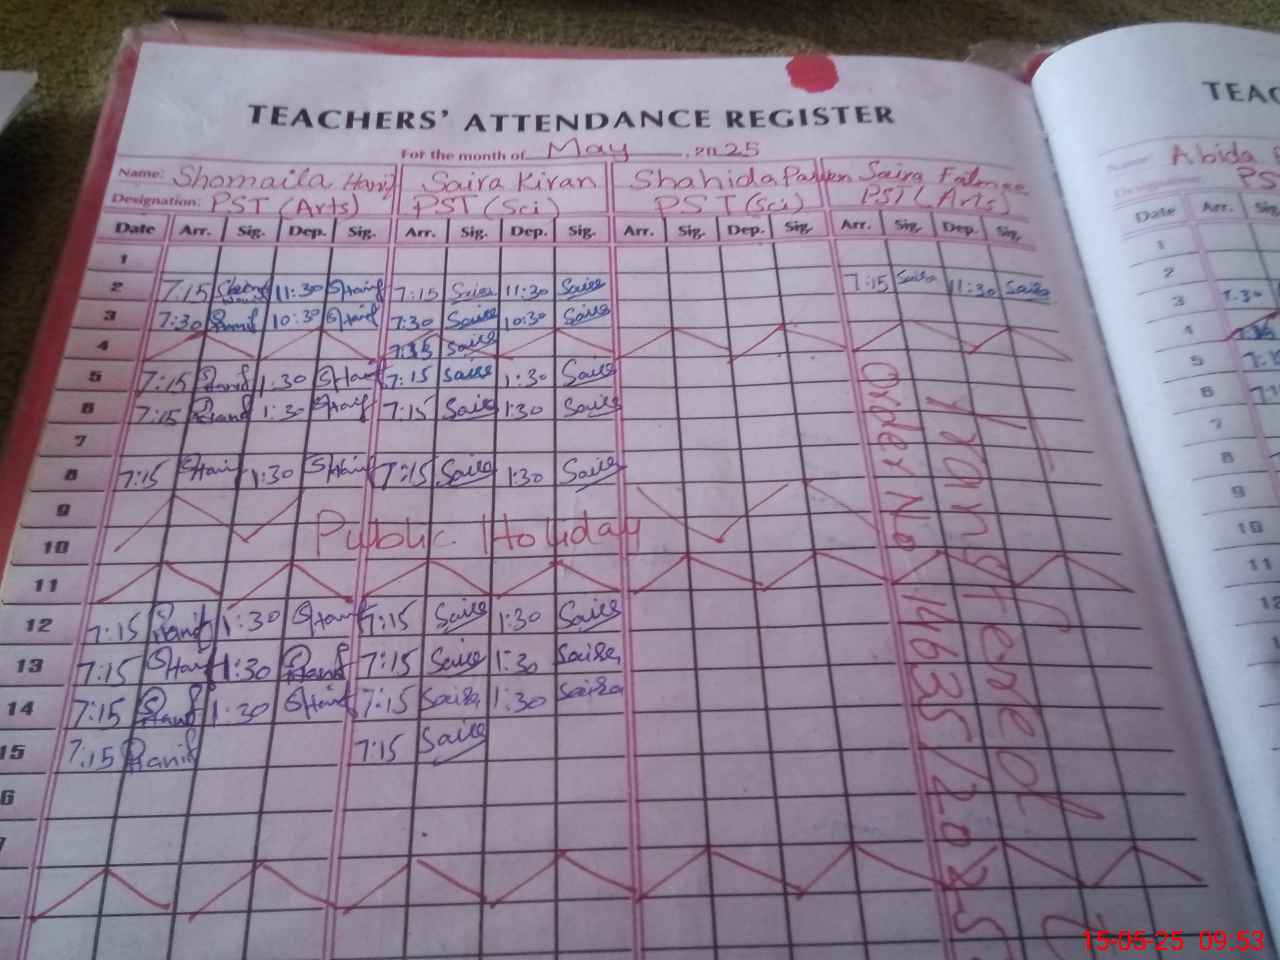 TEACHERS' ATTENDANCE REGISTER
For the month of May, 2025
Name: Shomaila Hanif Saira Kiran Shahida Parven Saira Fatmee
Designation: PST (Arts) PST (Sci) PST (Sci) PST (Arts)
Date Arr. Sig. Dep. Sig. Arr. Sig. Dep. Sig. Arr. Sig. Dep. Sig. Arr. Sig. Dep. Sig.
1
2 7:15 11:30 SHanif 7:15 Saira 11:30 Saira 7:15 Saira 11:30 Saira
3 7:30 10:30 SHanif 7:30 Saira 10:30 Saira
4 Saira
5 7:15 Hanif 1:30 SHanif 7:15 Saira 1:30 Saira
6 7:15 Hanif 1:30 SHanif 7:15 Saira 1:30 Saira
7
8 7:15 SHanif 1:30 SHanif 7:15 Saira 1:30 Saira
9
10 Public Holiday
11
12 7:15 Hanif 1:30 SHanif 7:15 Saira 1:30 Saira
13 7:15 SHanif 1:30 Hanif 7:15 Saira 1:30 Saira
14 7:15 SHanif 1:30 SHanif 7:15 Saira 1:30 Saira
15 7:15 Hanif 7:15 Saira
6
7
Transfered
Order No 14635/2025
TEAC
Name: Abida
Designation: PS
Date Arr. Sig
1
2
3 7:30
4
5 7:1
6 7:1
7
8
9
10
11
12
13
14
15-05-25 09:53